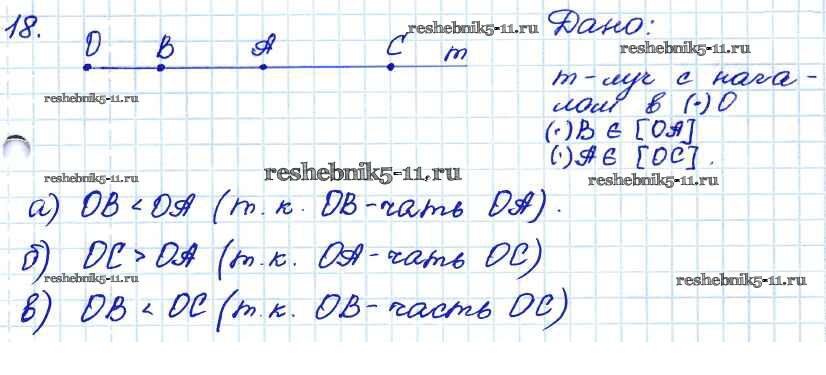 18.
O B A C m
reshebnik5-11.ru
Дано:
reshebnik5-11.ru
m-луч с нача-
лом в (·) O
reshebnik5-11.ru
(·) B ∈ [OA]
(·) A ∈ [OC].
reshebnik5-11.ru
reshebnik5-11.ru
reshebnik5-11.ru
а) OB < OA (т.к. OB-чать OA).
б) OC > OA (т.к. OA-чать OC)
reshebnik5-11.ru
reshebnik5-11.ru
в) OB < OC (т.к. OB-часть OC)